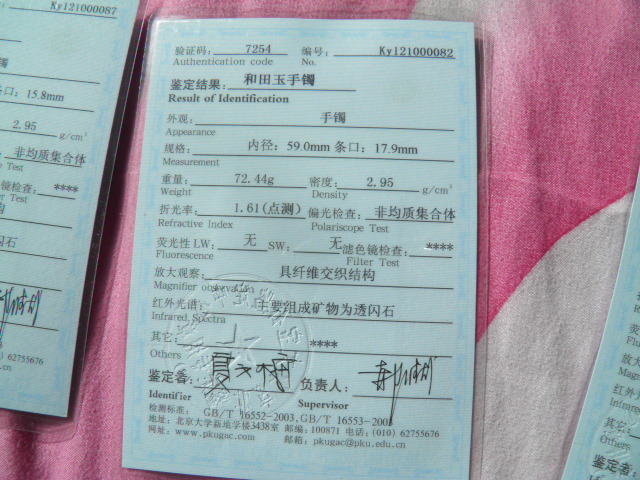 Ky121000087
条口：15.8mm
2.95 g/cm³
非均质集合体
Test
****
Test
62755676
验证码： 7254 编号： Ky121000082
Authentication code No.
鉴定结果： 和田玉手镯
Result of Identification
外观： 手镯
Appearance
规格： 内径：59.0mm 条口：17.9mm
Measurement
重量： 72.44g 密度： 2.95 g/cm³
Weight Density
折光率： 1.61(点测) 偏光检查： 非均质集合体
Refractive Index Polariscope Test
荧光性 LW： 无 SW： 无 滤色镜检查： ****
Fluorescence Filter Test
放大观察： 具纤维交织结构
Magnifier observation
红外光谱： 主要组成矿物为透闪石
Infrared Spectra
其它： ****
Others
鉴定者： 负责人：
Identifier Supervisor
检测标准： GB/T 16552-2003, GB/T 16553-2003
地址：北京大学新地学楼3438室 邮编：100871 电话：(010) 62755676
网址：www.pkugac.com 邮箱：pkugac@pku.edu.cn
放大
红外
Infrared
其它：
Others
鉴定